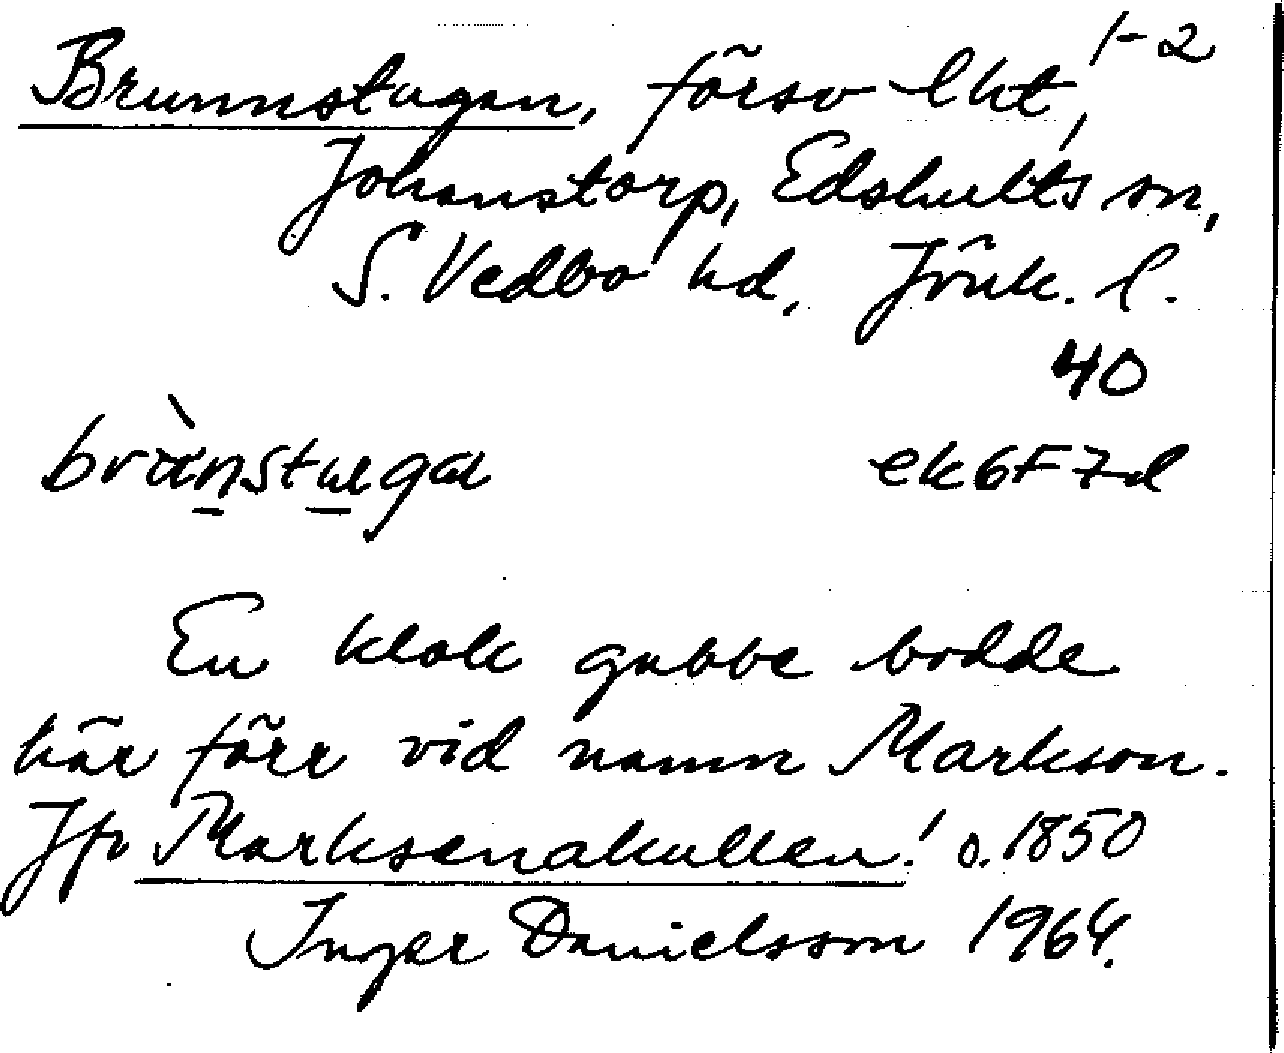 1-2
Brunnstugan, försv lht,
Johanstorp, Edshults sn,
S. Vedbo hd, Jönk. l.
40
brùn̲stu̲ga ek6F7d
En klok gubbe bodde
här förr vid namn Markson.
Jfr Marksenakullen! o. 1850
Inger Danielsson 1964.